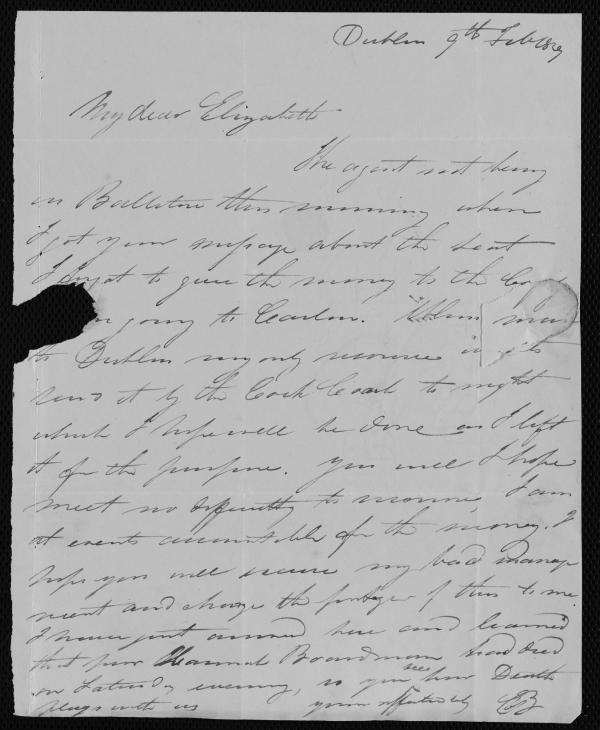 Dublin 9th Feb 1829
My dear Elizabeth
The agent not being
in Ballitore this morning when
I got your message about the seat
I forgot to give the money to the
going to Carlow. When
to Dublin my only resource is to
send it by the Cork Coach to night
which I hope will be done as I left
it for the purpose. You will I hope
meet no difficulty to morrow I am
at events accountable for the money. I
hope you will excuse my bad manage
ment and charge the postage of this to me.
I have just arrived here and learned
that poor Hannah Boardman had died
on Saturday evening, so you see how Death
plays with us yours affectionately EB